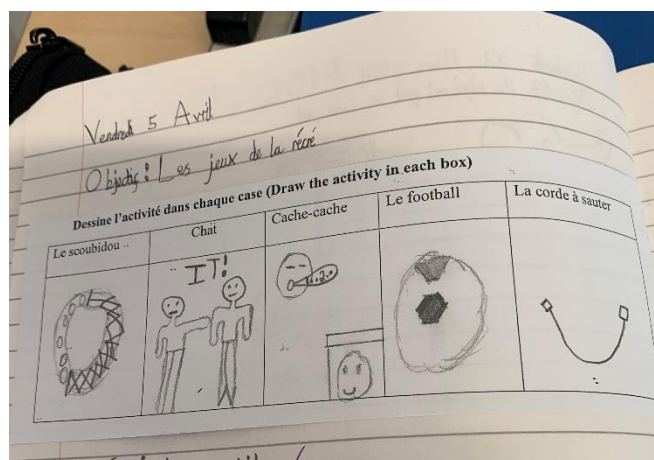 Vendredi 5 Avril
Objectif : Les jeux de la récré
Dessine l'activité dans chaque case (Draw the activity in each box)
Le scoubidou
Chat
Cache-cache
Le football
La corde à sauter
IT!